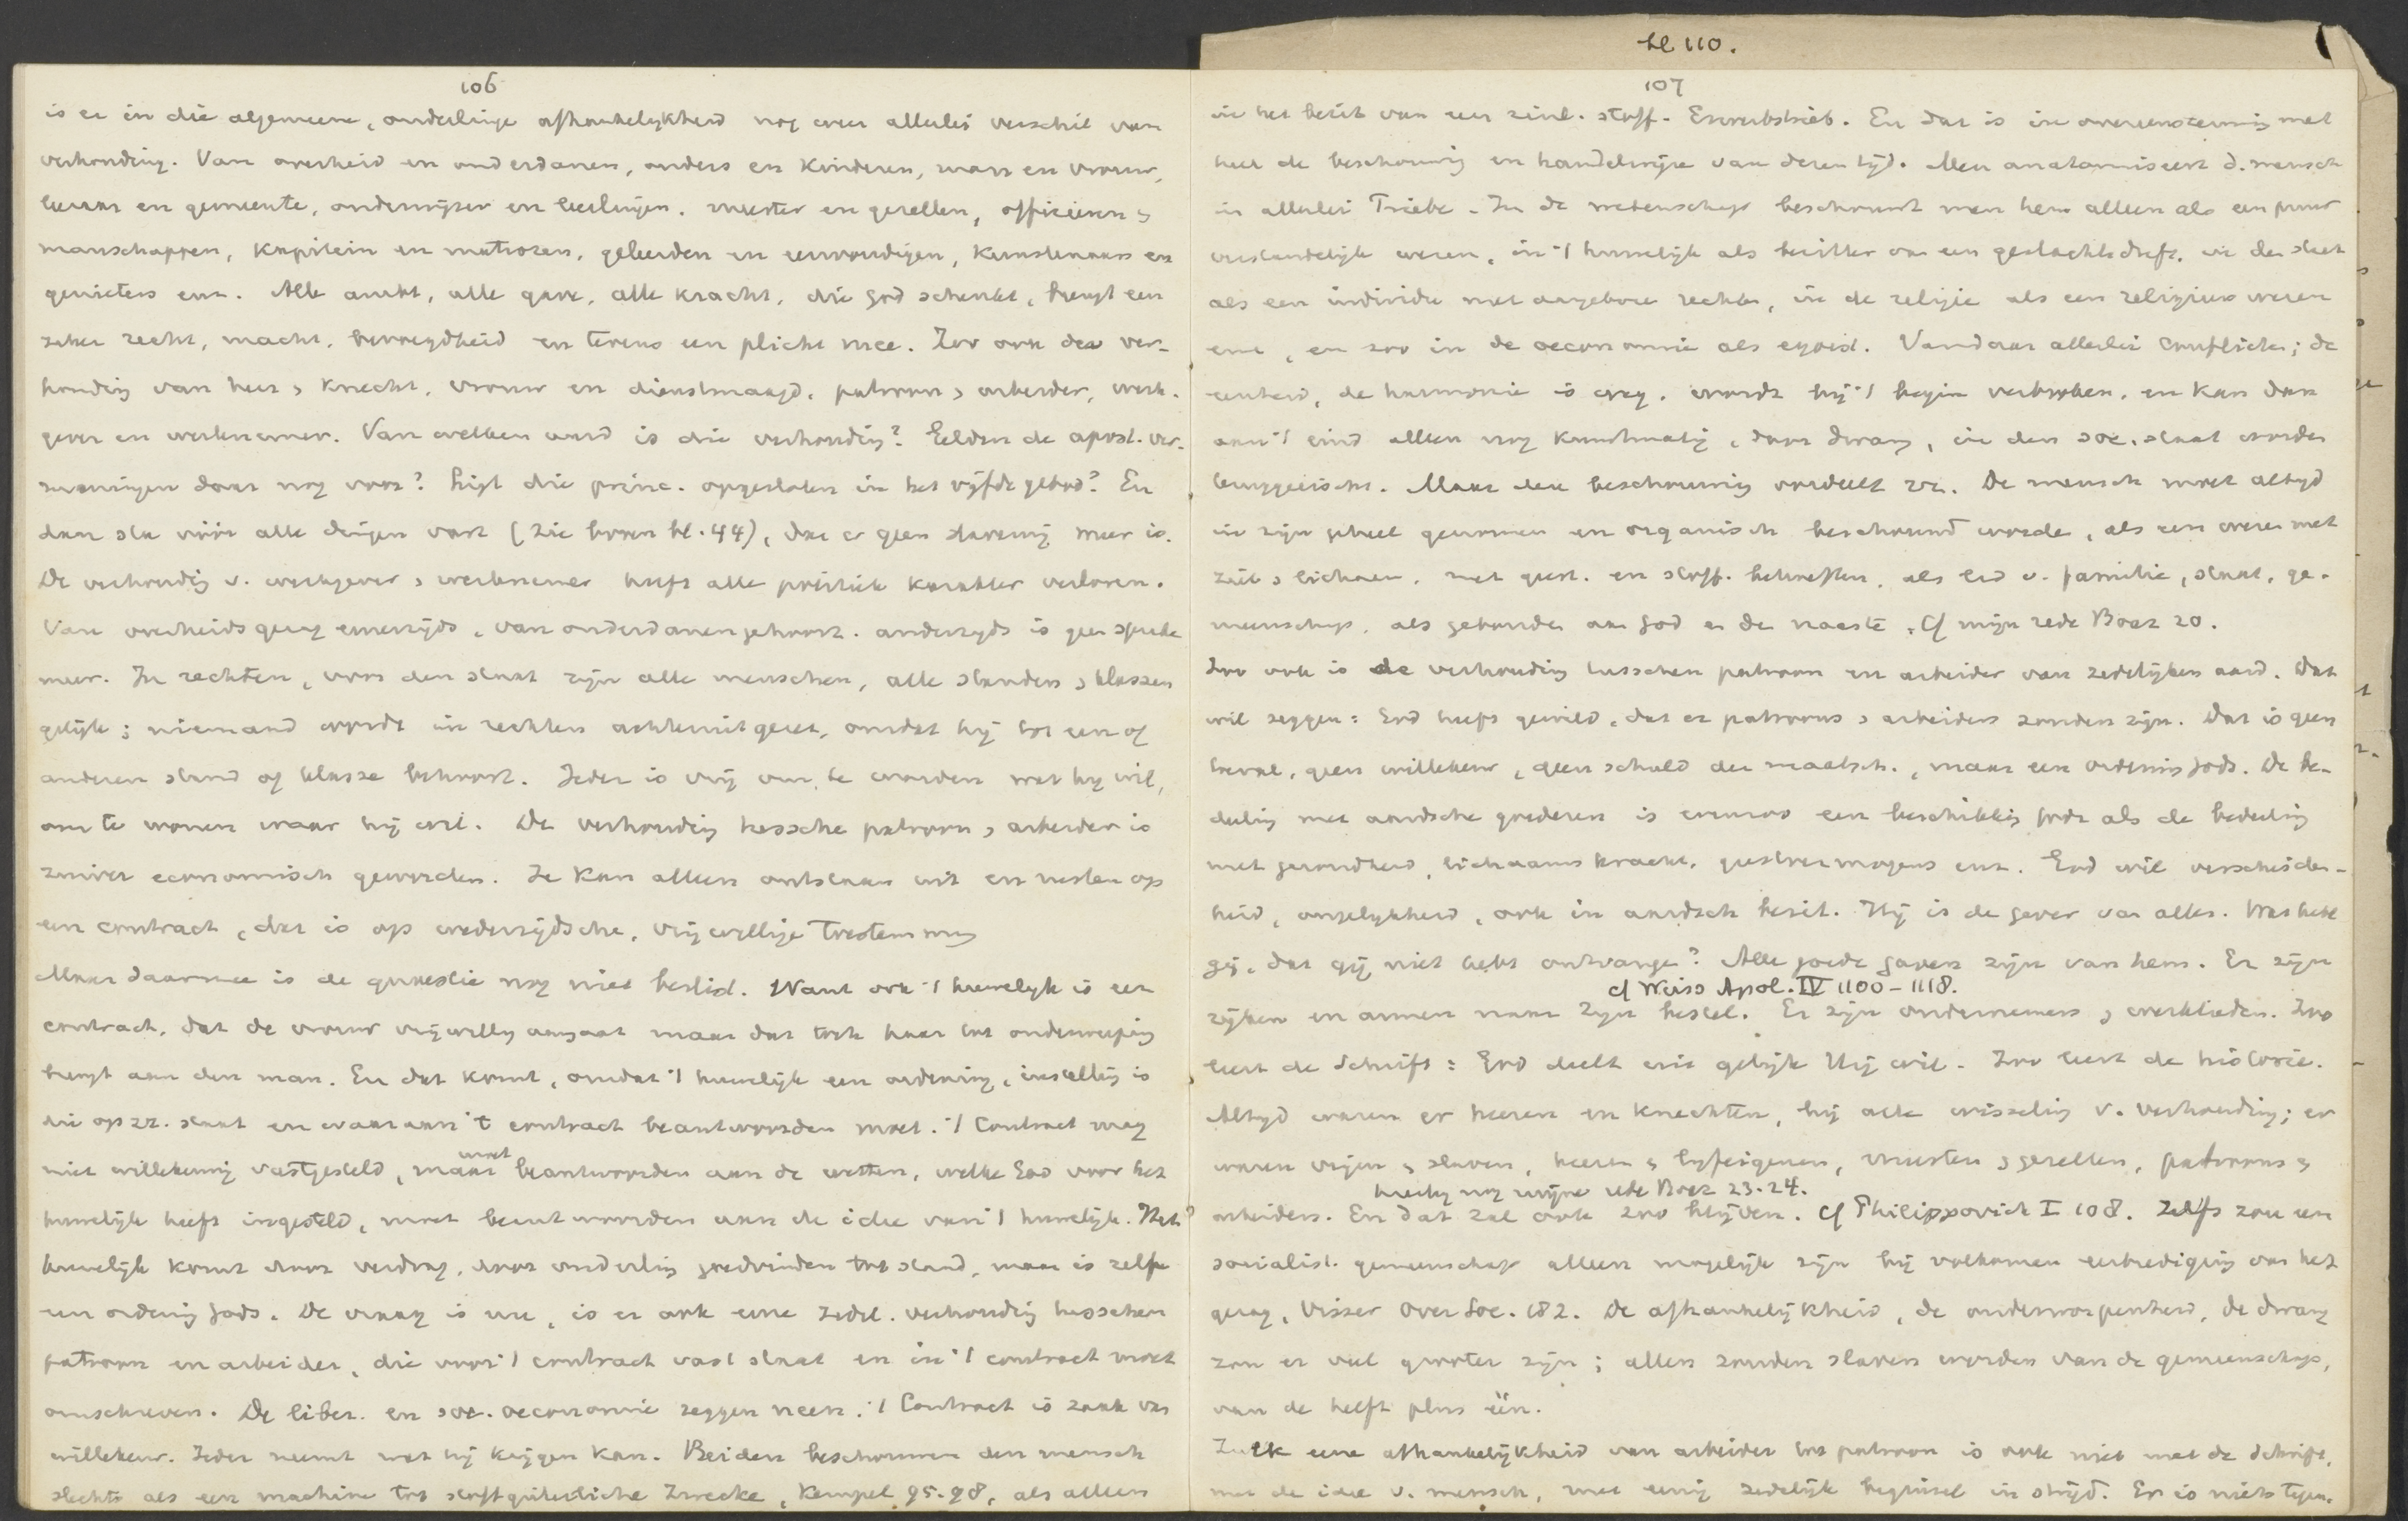 bl 110.
106
is er in die algemeene, onderlinge afhankelijkheid nog weer allerlei verschil van
verhouding. Van overheid en onderdanen, ouders en kinderen, man en vrouw,
leeraar en gemeente, onderwijzer en leerlingen. meester en gezellen, officieren en
manschappen, kapitein en matrozen, geleerden en eenvoudigen, kunstenaars en
genieters enz. Alle ambt, alle gave, alle kracht, die God schenkt, brengt een
zeker recht, macht, bevoegdheid en tevens een plicht mee. Zoo ook de ver-
houding van heer en knecht, vrouw en dienstmaagd, patroon en arbeider, werk-
gever en werknemer. Van welken aard is die verhouding? Gelden de apost. ver-
maningen daar nog voor? Ligt die princ. opgesloten in het vijfde gebod? En
dan sta vóór alle dingen vast (zie boven bl. 44), dat er geen slavernij meer is.
De verhouding v. werkgever en werknemer heeft alle politiek karakter verloren.
Van overheidsgezag eenerzijds, van onderdanengehoorz. anderzijds is geen sprake
meer. In rechten, voor den staat zijn alle menschen, alle standen en klassen
gelijk; niemand wordt in rechten achteruitgezet, omdat hij tot een of
anderen stand of klasse behoort. Ieder is vrij om te worden wat hij wil,
om te wonen waar hij wil. De verhouding tussche patroon en arbeider is
zuiver economisch geworden. Ze kan alleen ontstaan uit en rusten op
een contract, dat is op wederzijdsche, vrijwillige toestemming
Maar daarmee is de quaestie nog niet beslist. Want ook 't huwelijk is een
contract, dat de vrouw vrijwillig aangaat maar dat toch haar tot onderwerping
brengt aan den man. En dat komt, omdat 't huwelijk een ordening, instelling is
die op zz. staat en waaraan 't contract beantwoorden moet. 't Contract mag
niet willekeurig vastgesteld, maar moet beantwoorden aan de wetten, welke God voor het
huwelijk heeft ingesteld, moet beantwoorden aan de idee van 't huwelijk. Het
huwelijk komt door verdrag, door onderling goedvinden tot stand, maar is zelf
een ordening Gods. De vraag is nu, is er ook eene zedel. verhouding tusschen
patroon en arbeider, die voor 't contract vast staat en in 't contract moet
omschreven. De liber. en soc. oeconomie zeggen neen. 't Contract is zaak van
willekeur. Ieder neemt wat hij krijgen kan. Beiden beschouwen den mensch
slechts als een machine tot stoffgüterliche Zwecke, Kempel 95.98, als alleen
107
in het bezit van een zinl. stoff. Erwerbstrieb. En dat is in overeenstemming met
heel de beschouwing en handelwijze van dezen tijd. Men anatomiseert d. mensch
in allerlei Triebe. In de wetenschap beschouwt men hem alleen als een puur
verstandelijk wezen, in 't huwelijk als bezitter van een geslachtsdrift, in den staat
als een individu met aangebore rechten, in de religie als een religieus wezen
enz, en zoo in de oeconomie als egoist. Vandaar allerlei conflicten; de
eenheid, de harmonie is weg, wordt bij 't begin verbroken, en kan dan
aan 't eind alleen nog kunstmatig, door dwang, in den soc. staat worden
teruggeeischt. Maar deze beschouwing oordeelt zz. De mensch moet altijd
in zijn geheel genomen en organisch beschouwd worde, als een wezen met
ziel en lichaam, met geest. en stoff. behoeften, als lid v. familie, staat, ge-
meenschap, als gebonden aan God en den naaste. Cf mijn rede Boaz 20.
Zoo ook is de verhouding tusschen patroon en arbeider van zedelijken aard. Dat
wil zeggen: God heeft gewild, dat er patroons en arbeiders zouden zijn. Dat is geen
toeval, geen willekeur, geen schuld der maatsch., maar een ordening Gods. De be-
deeling met aardsche goederen is evenzoo een beschikking Gods als de bedeeling
met gezondheid, lichaamskracht, geestvermogens enz. God wil verscheiden-
heid, ongelijkheid, ook in aardsch bezit. Hij is de gever van alles. Wat hebt
gij, dat gij niet hebt ontvangen? Alle goede gaven zijn van hem. Er zijn
cf Weiss Apol. IV 1100-1118.
rijken en armen naar Zijn bestel. Er zijn ondernemers en werklieden. Zoo
leert de Schrift: God deelt uit gelijk Hij wil. Zoo leert de historie.
Altijd waren er heeren en knechten, bij alle wisseling v. verhouding; er
waren vrijen en slaven, heeren en lijfeigenen, meesters en gezellen, patroons en
nog mijne rede Boaz 23-24.
arbeiders. En dat zal ook zoo blijven. cf Philippovich I 108. Zelfs zou een
socialist. gemeenschap alleen mogelijk zijn bij volkomen eerbiediging van het
gezag, Visser Over Soc. 182. De afhankelijkheid, de onderworpenheid, de dwang
zou er veel grooter zijn; allen zouden slaven worden van de gemeenschap,
van de helft plus één.
Zulk eene afhankelijkheid van arbeider tot patroon is ook niet met de Schrift,
met de idee v. mensch, met eenig zedelijk beginsel in strijd. Er is niets tegen.